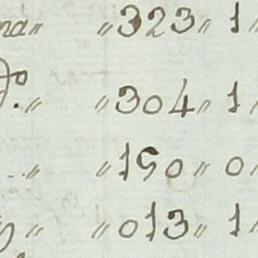 na〃 〃323〃 1
D.º〃 〃304〃 1
〃 〃150〃 0
〃 〃013〃 1